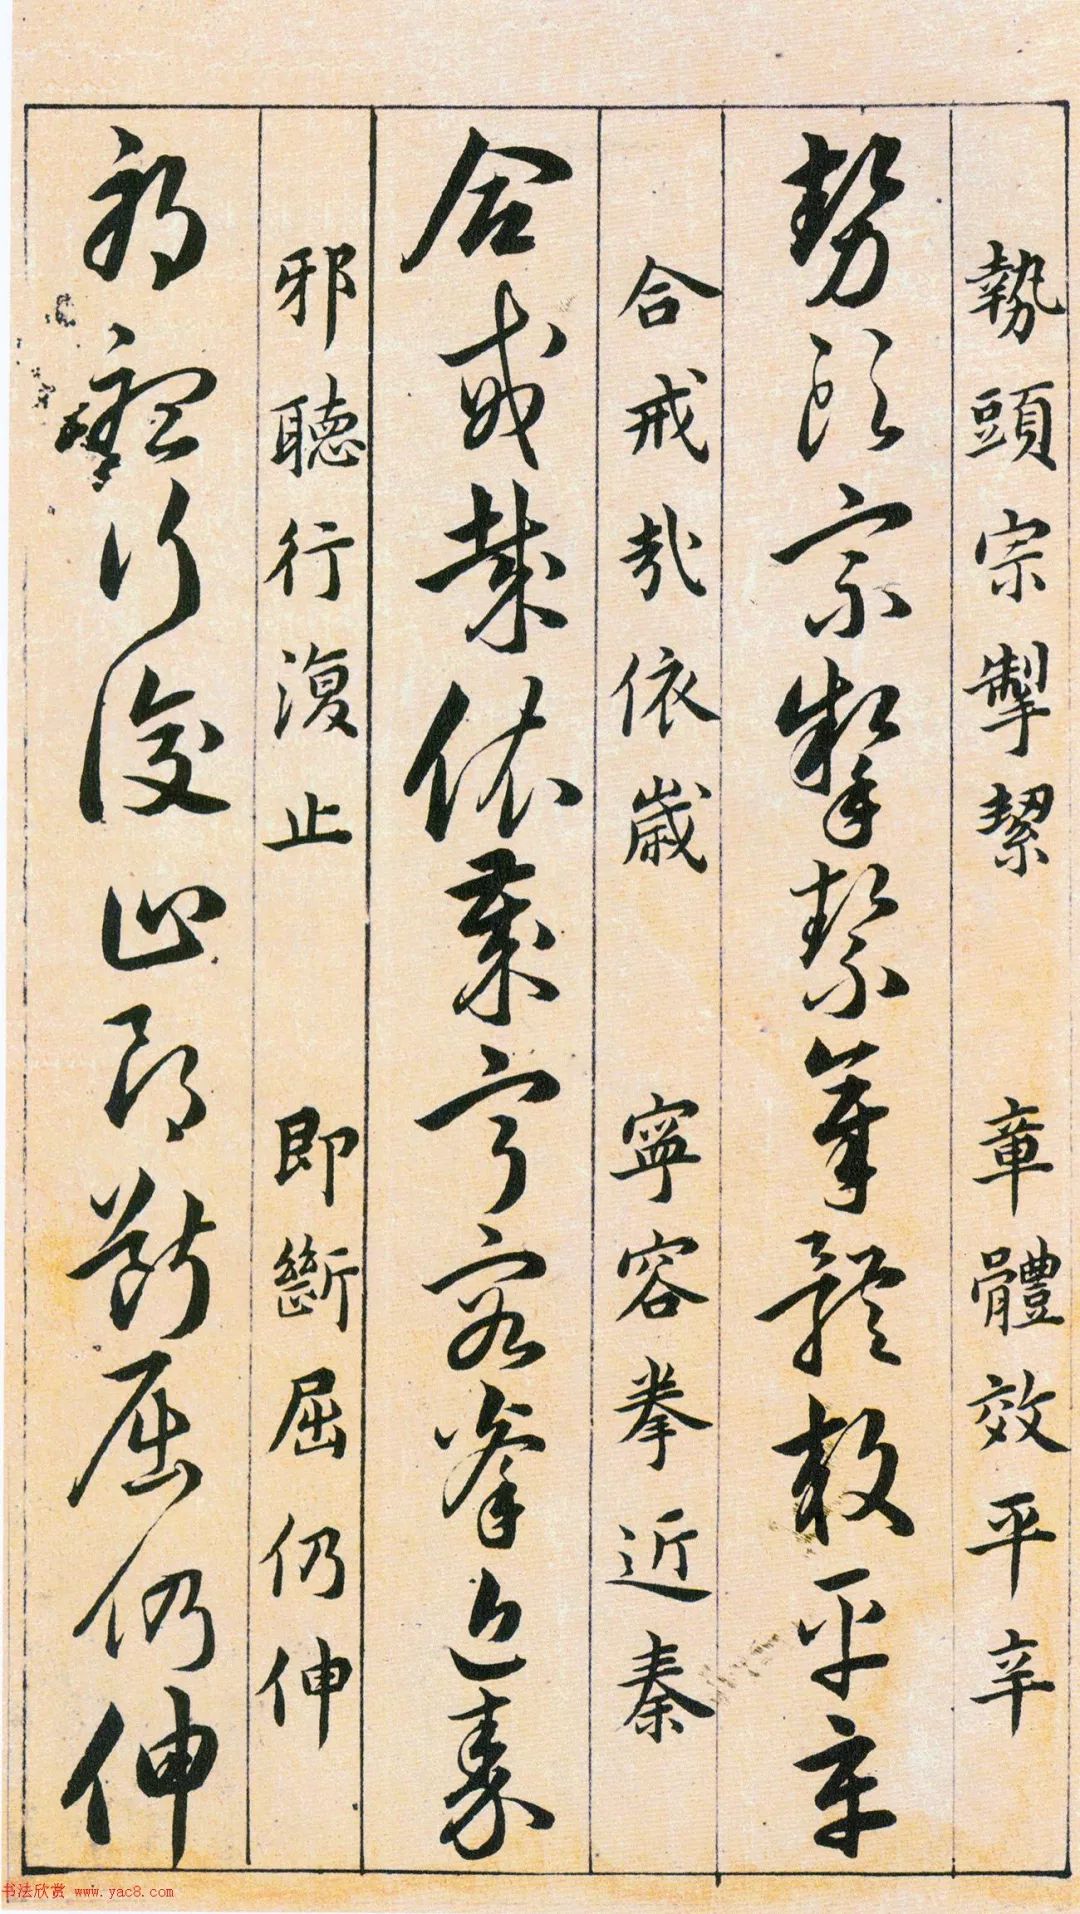 勢頭宗掣絜 章體效平辛
勢頭宗掣絜章體效平辛
合戒依歲 寧容拳近秦
合戒依歲寧容拳近秦
邪聽行復止 即斷屈仍伸
邪聽行復止即斷屈仍伸
书法欣赏 www.yac8.com